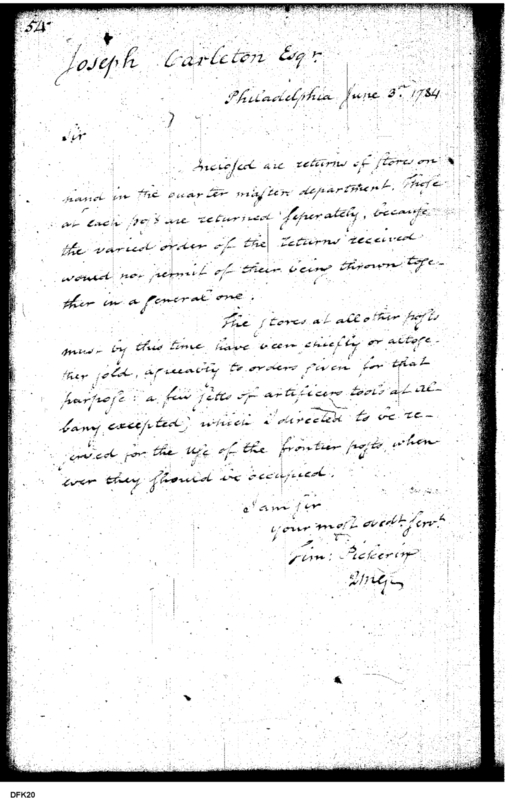 54
Joseph Carleton Esqr.
Philadelphia June 3d. 1784
Sir
Inclosed are returns of stores on
hand in the quarter masters department. Those
at each post are returned seperately, because
the varied order of the returns received
would not permit of their being thrown toge-
ther in a general one.
The stores at all other posts
must by this time have been chiefly or altoge-
ther sold, agreeably to orders given for that
purpose: a few setts of artificers tools at Al-
bany excepted, which I directed to be re-
served for the use of the frontier posts, when
ever they should be occupied.
I am sir
your most obedt. servt.
Tim: Pickering
QMG
DFK20